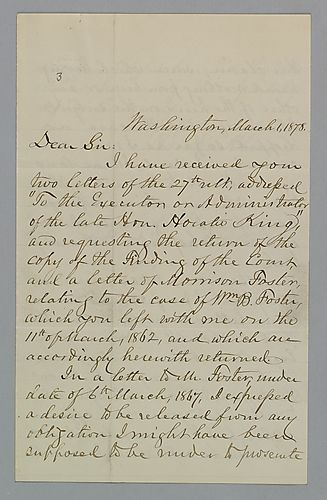 3
Washington, March 1, 1878.
Dear Sir:
I have received your
two letters of the 27th ult., addressed
"To the Executor or Administrator
of the late Hon. Horatio King,"
and requesting the return of the
copy of the Finding of the Court
and a letter of Morrison Foster,
relating to the case of Wm B. Foster,
which you left with me on the
11th of March, 1862, and which are
accordingly herewith returned.
In a letter to Mr. Foster, under
date of 6th March, 1867, I expressed
a desire to be released from any
obligation I might have been
supposed to be under to prosecute